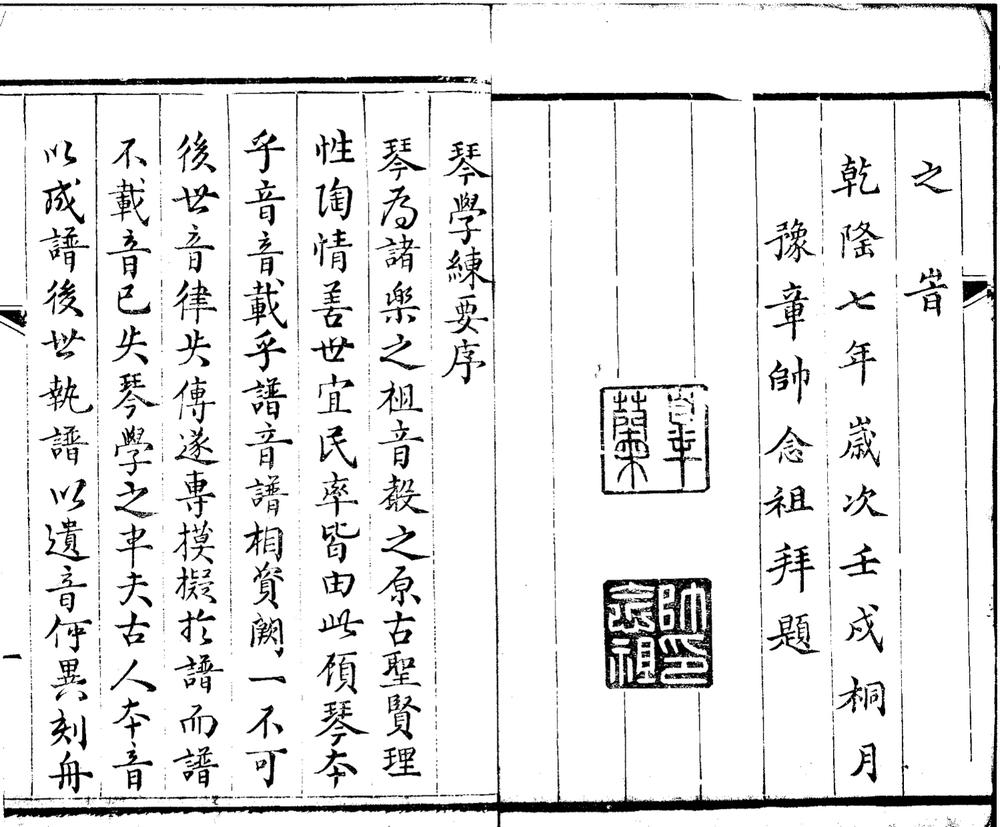 之峕
乾隆七年歲次壬戌桐月
豫章帥念祖拜題
皋蘭
帥印念祖
琴學練要序
琴為諸樂之祖音聲之原古聖賢理
性陶情善世宜民率皆由此顧琴本
乎音音載乎譜音譜相資闕一不可
後世音律失傳遂專摸擬於譜而譜
不載音已失琴學之半夫古人本音
以成譜後世執譜以遺音何異刻舟
一